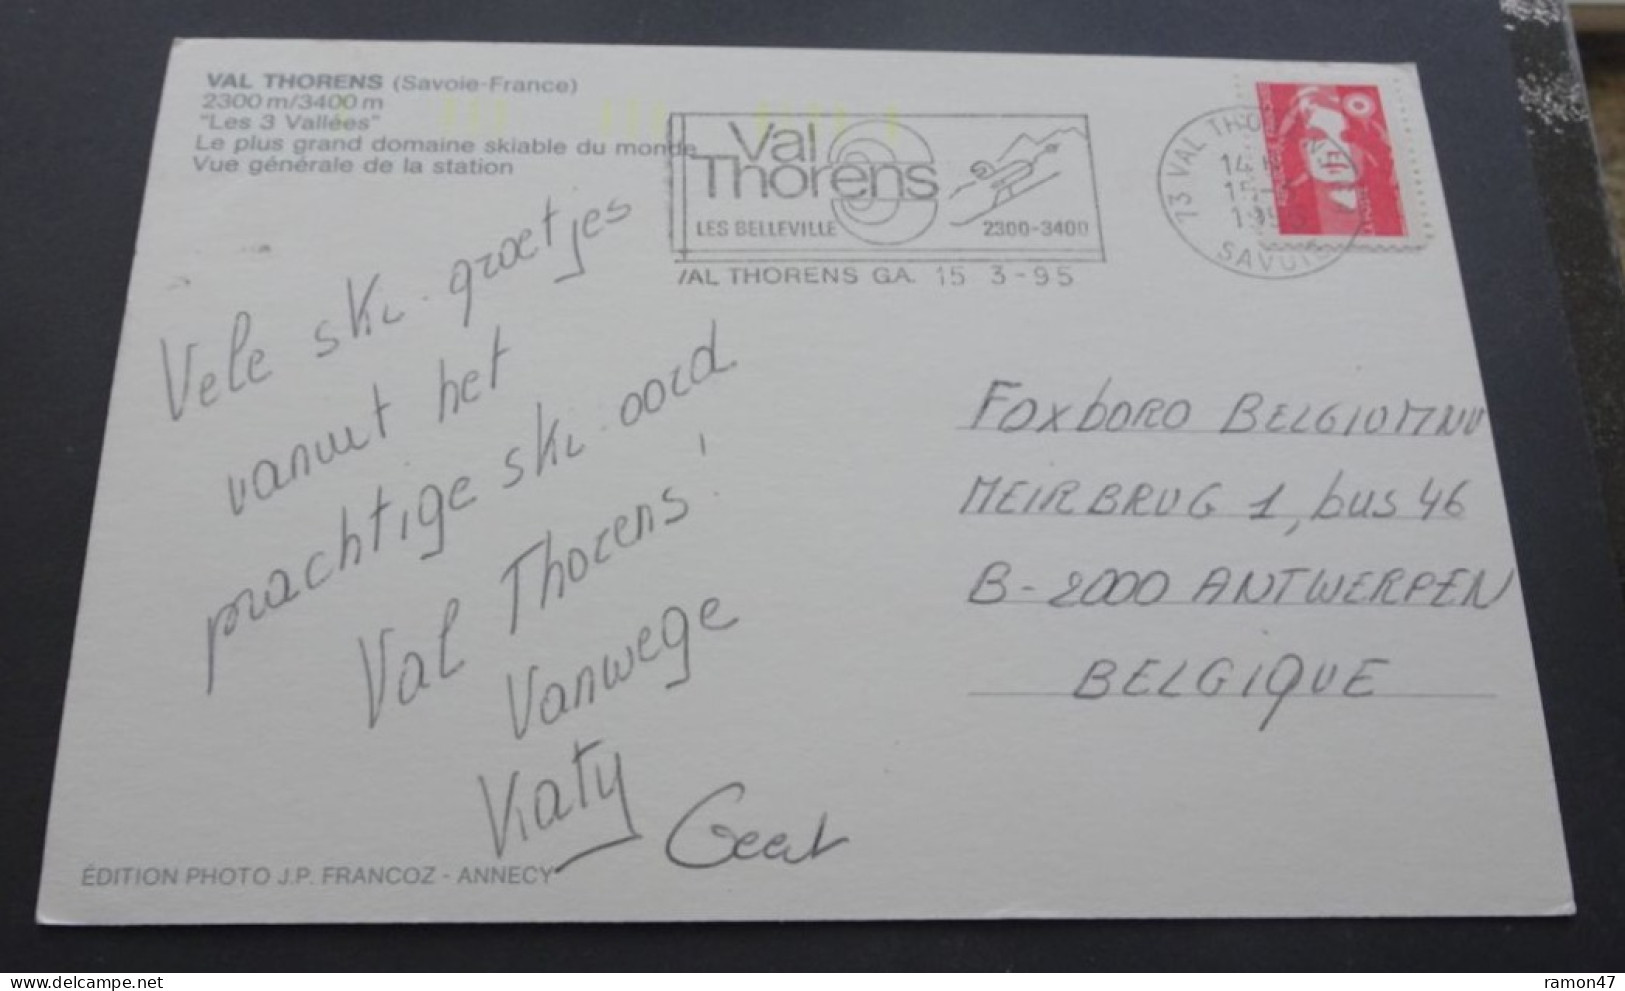 VAL THORENS (Savoie-France)
2300 m/3400 m
"Les 3 Vallées"
Le plus grand domaine skiable du monde
Vue générale de la station
Val
Thorens
LES BELLEVILLE
2300-3400
VAL THORENS GA. 15 3-95
73 VAL THO
SAVOIE
Vele ski-groetjes
vanuit het
prachtige ski-oord
Val Thorens!
Vanwege
Katy
Geert
FOXBORO BELGIUM NV
MEIRBRUG 1, bus 46
B-2000 ANTWERPEN
BELGIQUE
ÉDITION PHOTO J.P. FRANCOZ - ANNECY
ramon47